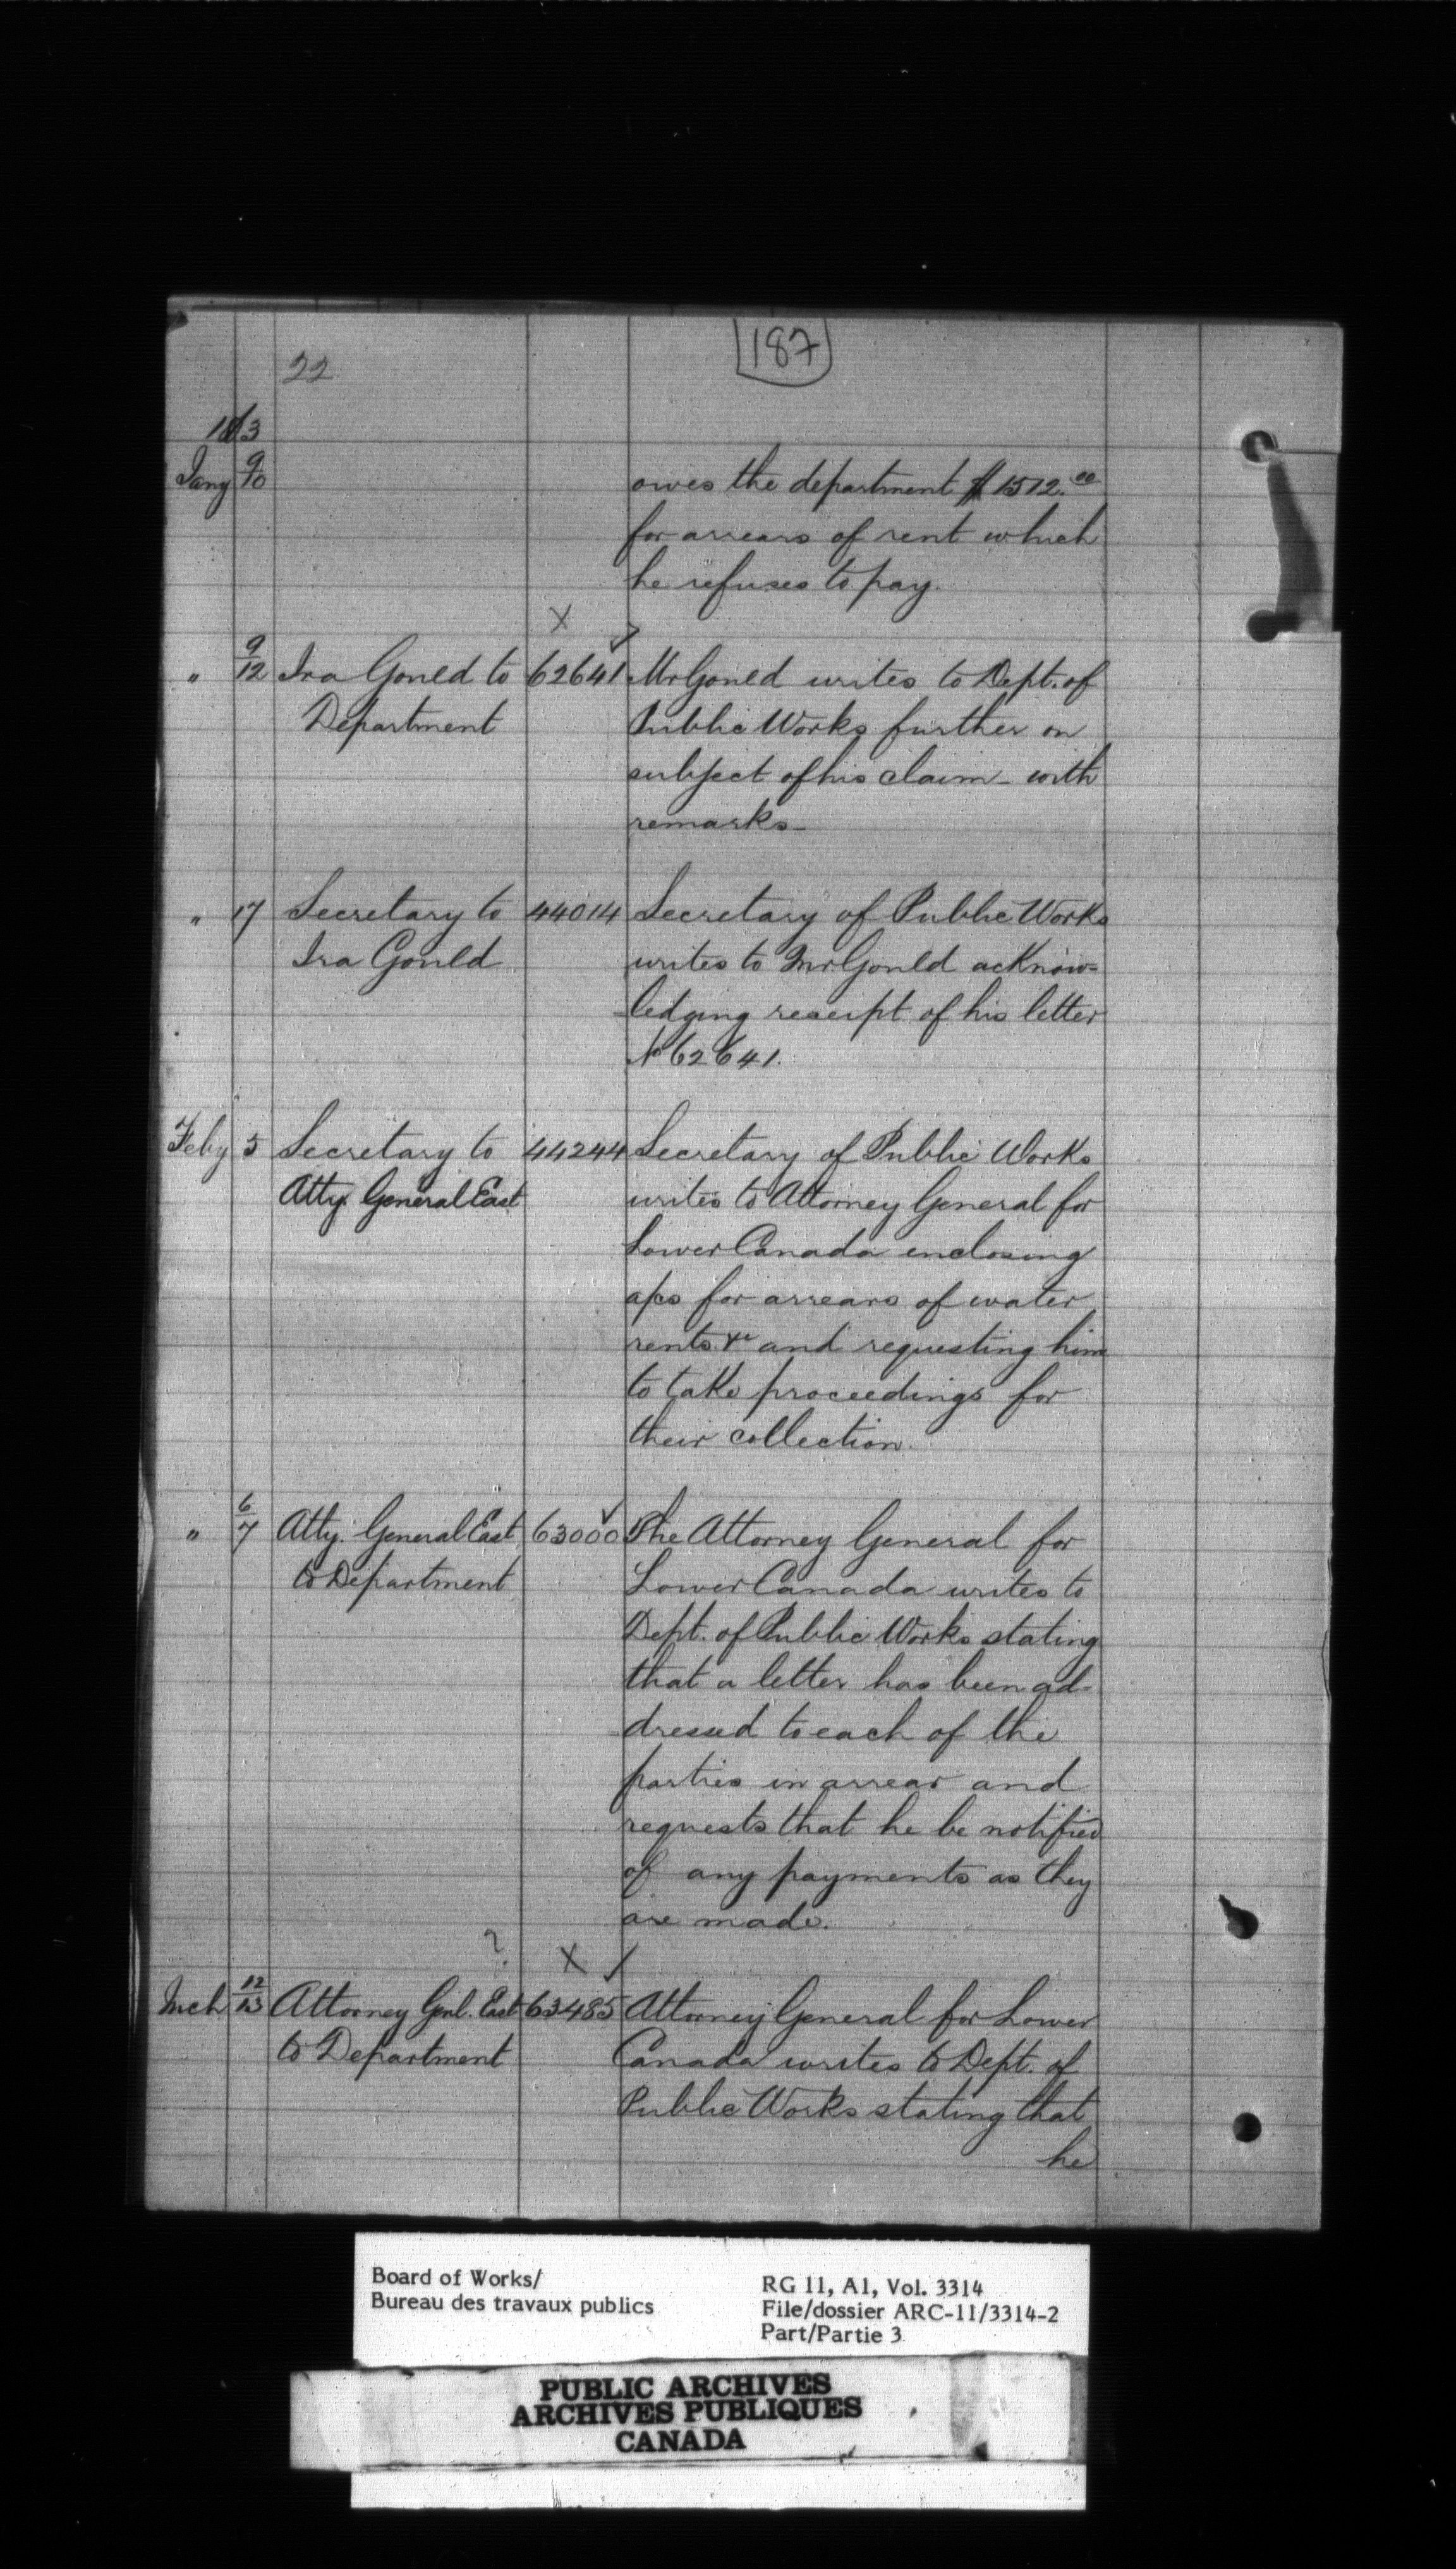 187
22
1863
Jany 9/10 owes the department $1512.00
for arrears of rent which
he refuses to pay.
X
" 9/12 Ira Gould to 62641 Mr Gould writes to Dept. of
Department Public Works further on
subject of his claim - with
remarks -
" 17 Secretary to 44014 Secretary of Public Works
Ira Gould writes to Mr Gould acknow=
ledging receipt of his letter
No 62641.
Feby 5 Secretary to 44244 Secretary of Public Works
Atty. General East writes to Attorney General for
Lower Canada enclosing
a/cs for arrears of water
rents &c and requesting him
to take proceedings for
their collection.
" 6/7 Atty. General East 63000 The Attorney General for
to Department Lower Canada writes to
Dept. of Public Works stating
that a letter has been ad-
dressed to each of the
parties in arrear and
requests that he be notified
of any payments as they
are made.
? X
Mch 12/13 Attorney Gnl. East 63485 Attorney General for Lower
to Department Canada writes to Dept. of
Public Works stating that
he
Board of Works/
Bureau des travaux publics
RG 11, A1, Vol. 3314
File/dossier ARC-11/3314-2
Part/Partie 3
PUBLIC ARCHIVES
ARCHIVES PUBLIQUES
CANADA